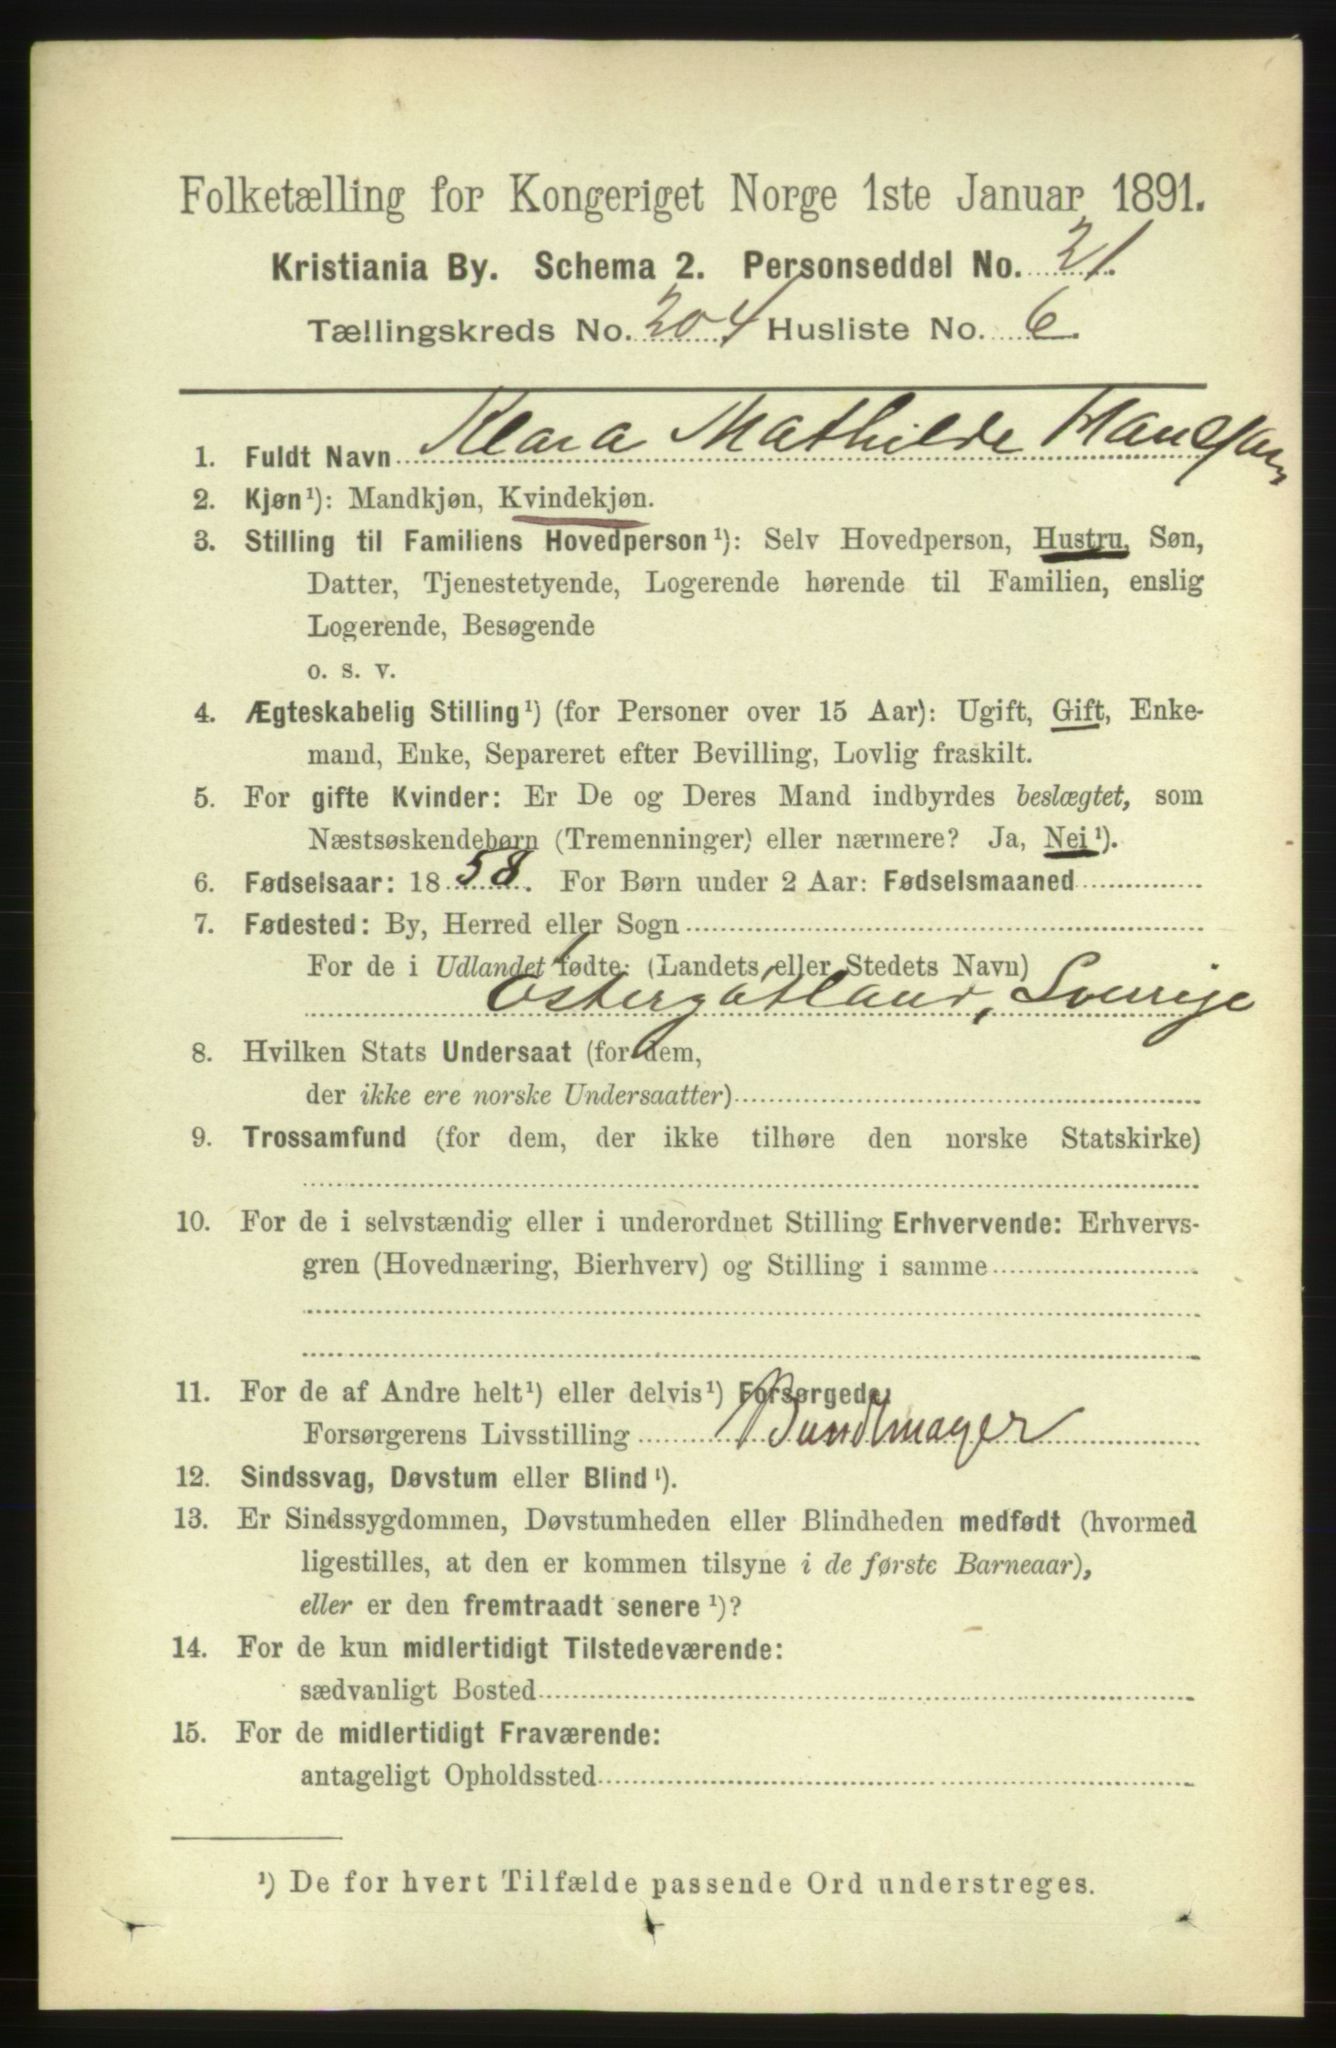 Folketælling for Kongeriget Norge 1ste Januar 1891.
Kristiania By. Schema 2. Personseddel No. 21.
Tællingskreds No. 204 Husliste No. 6.
1. Fuldt Navn Klara Mathilde Hanssen
2. Kjøn¹): Mandkjøn, Kvindekjøn.
3. Stilling til Familiens Hovedperson¹): Selv Hovedperson, Hustru, Søn,
Datter, Tjenestetyende, Logerende hørende til Familien, enslig
Logerende, Besøgende
o. s. v.
4. Ægteskabelig Stilling¹) (for Personer over 15 Aar): Ugift, Gift, Enke-
mand, Enke, Separeret efter Bevilling, Lovlig fraskilt.
5. For gifte Kvinder: Er De og Deres Mand indbyrdes beslægtet, som
Næstsøskendebørn (Tremenninger) eller nærmere? Ja, Nei¹).
6. Fødselsaar: 1858. For Børn under 2 Aar: Fødselsmaaned
7. Fødested: By, Herred eller Sogn
For de i Udlandet fødte: (Landets eller Stedets Navn)
Østergøtland, Sverrige
8. Hvilken Stats Undersaat (for dem,
der ikke ere norske Undersaatter)
9. Trossamfund (for dem, der ikke tilhøre den norske Statskirke)
10. For de i selvstændig eller i underordnet Stilling Erhvervende: Erhvervs-
gren (Hovednæring, Bierhverv) og Stilling i samme
11. For de af Andre helt¹) eller delvis¹) Forsørgede,
Forsørgerens Livsstilling Bundtmager
12. Sindssvag, Døvstum eller Blind¹).
13. Er Sindssygdommen, Døvstumheden eller Blindheden medfødt (hvormed
ligestilles, at den er kommen tilsyne i de første Barneaar),
eller er den fremtraadt senere¹)?
14. For de kun midlertidigt Tilstedeværende:
sædvanligt Bosted
15. For de midlertidigt Fraværende:
antageligt Opholdssted
¹) De for hvert Tilfælde passende Ord understreges.